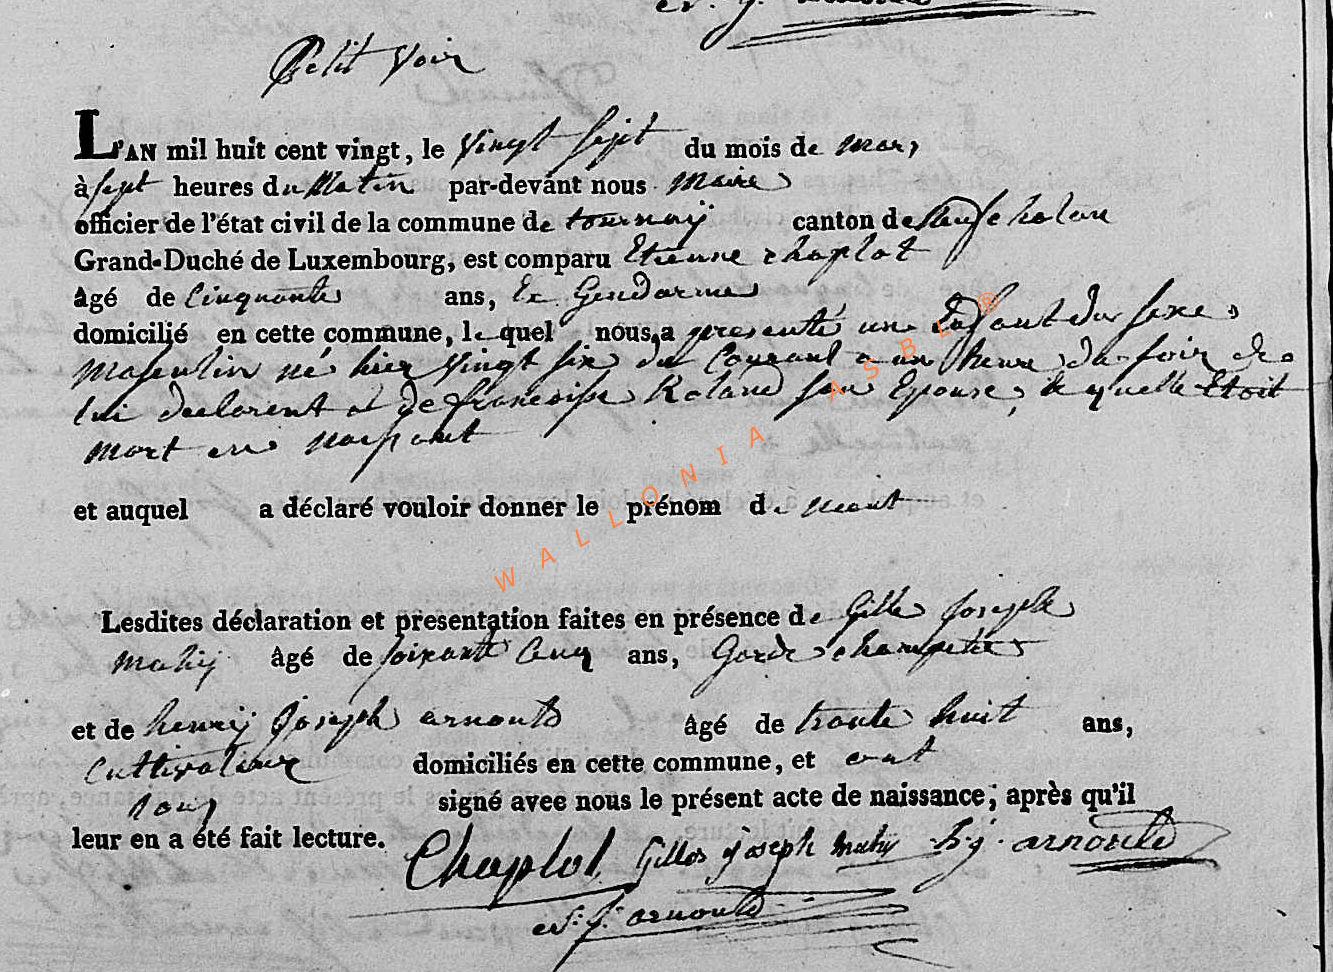 Petit Voir
L'AN mil huit cent vingt, le vingt sept du mois de mars
à sept heures du Matin par-devant nous maire
officier de l'état civil de la commune de tournay canton de Neufchateau
Grand-Duché de Luxembourg, est comparu Etienne chaplot
âgé de Cinquante ans, Ex Gendarme
domicilié en cette commune, lequel nous a presenté un Enfant du sexe
masculin né hier vingt six du Courant a un heure du soir de
lui declarent et de francoise Roland son Epouse, lequelle Etoit
mort en naissant
et auquel a déclaré vouloir donner le prénom de
Lesdites déclaration et presentation faites en présence de Gille Joseph
mahy âgé de soixante Cinq ans, Garde champetre
et de henry Joseph arnould âgé de trente huit ans,
Cultivateur domiciliés en cette commune, et ont
tous signé avec nous le présent acte de naissance; après qu'il
leur en a été fait lecture.
Chaplot Gilles joseph mahy h.j. arnould
j. arnould
WALLONIA ASBL ®